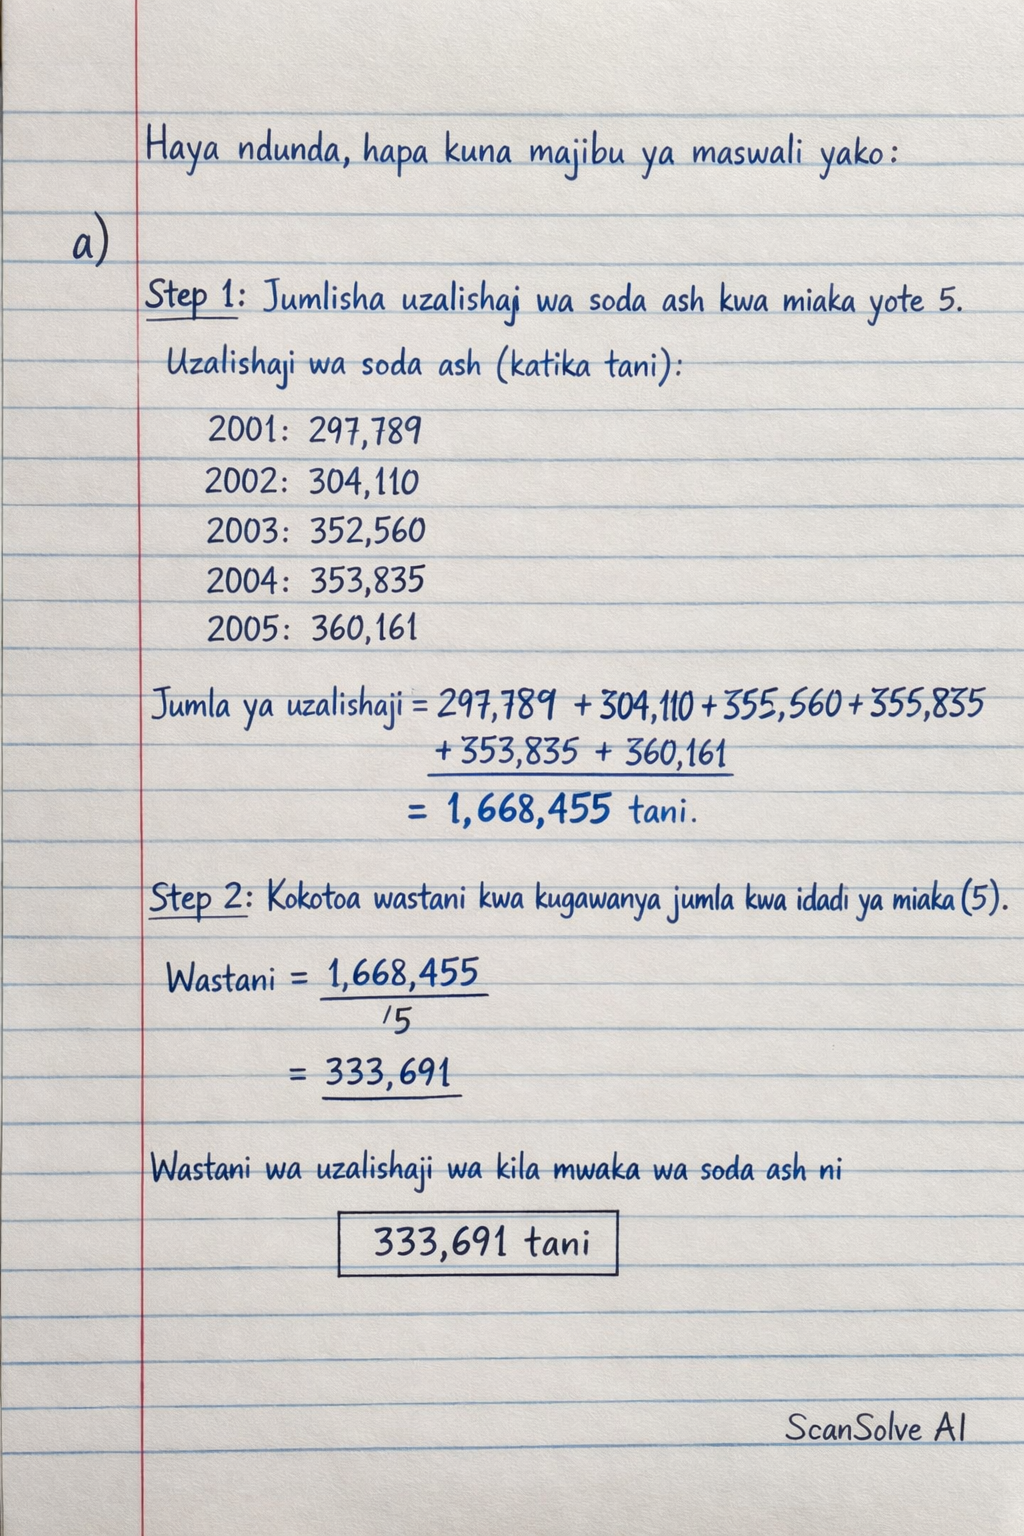 Haya ndunda, hapa kuna majibu ya maswali yako:
a)
Step 1: Jumlisha uzalishaj wa soda ash kwa miaka yote 5.
Uzalishaji wa soda ash (katika tani):
2001: 297,789
2002: 304,110
2003: 352,560
2004: 353,835
2005: 360,161
Jumla ya uzalishaji = 297,789 + 304,110 + 355,560 + 355,835
+ 353,835 + 360,161
= 1,668,455 tani.
Step 2: Kokotoa wastani kwa kugawanya jumla kwa idadi ya miaka (5).
Wastani = 1,668,455
/5
= 333,691
Wastani wa uzalishaji wa kila mwaka wa soda ash ni
333,691 tani
ScanSolve AI